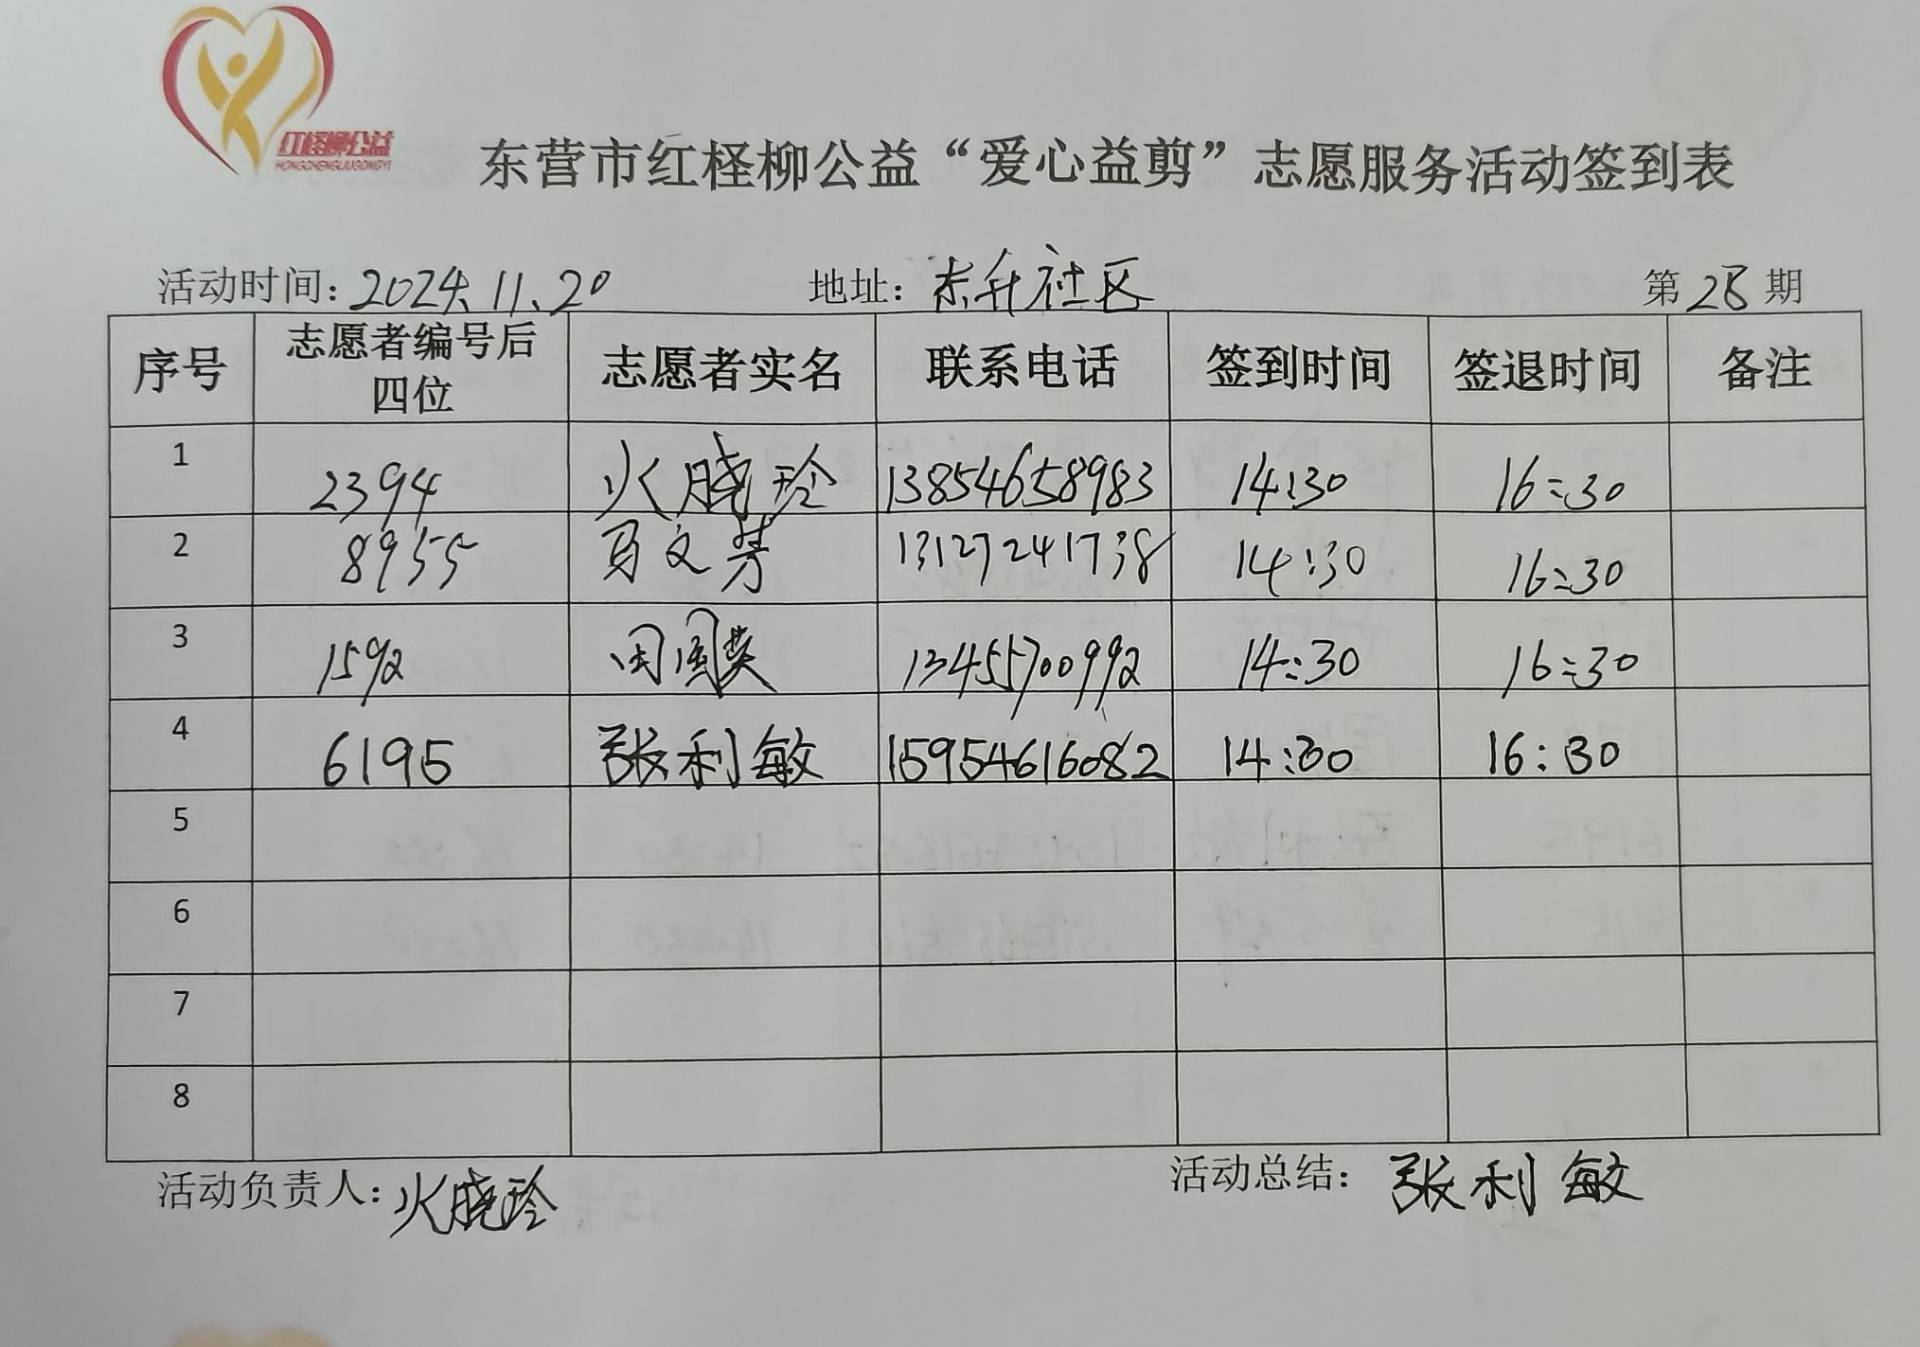 红柽柳公益
HONGCHENGLIUGONGYI
东营市红柽柳公益“爱心益剪”志愿服务活动签到表
活动时间：2024.11.20 地址：东升社区 第28期
序号 志愿者编号后四位 志愿者实名 联系电话 签到时间 签退时间 备注
1 2394 火晓玲 13854658983 14:30 16:30
2 8955 马文芳 13127241738 14:30 16:30
3 1592 田国英 13455700992 14:30 16:30
4 6195 张利敏 15954616082 14:30 16:30
5
6
7
8
活动负责人：火晓玲 活动总结：张利敏